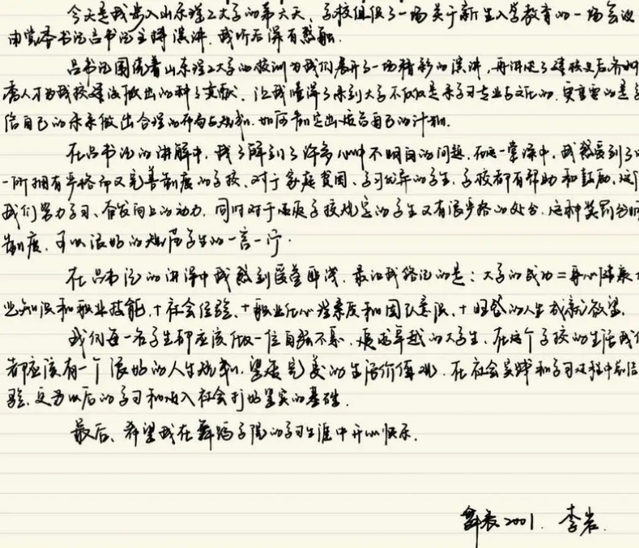 今天是我步入山东理工大学的第六天，学校组织了一场关于新生入学教育的一场会议
由党委书记吕书记主持演讲，我听后深有感触.
吕书记围绕着山东理工大学的校训为我们展开了一场精彩的演讲，再讲述了建校史后
人才为我校建设做出的种种贡献.让我懂得了来到大学不仅仅是来学习专业与文化的.更重要的是
自己的未来做出合理的布局与规划.如何制定出适合自己的计划.
在吕书记的讲解中，我了解到了许多心中不明白的问题.在这一堂课中，我感受到了
一所拥有严格而又完善制度的学校.对于家庭贫困、学习优异的学生，学校都有帮助和鼓励.
我们努力学习、奋发向上的动力.同时对于违反学校规定的学生又有很严格的处分.这种奖罚分明
制度.可以很好的规范学生的一言一行.
在吕书记的讲课中我感到匪浅.最让我铭记的是：大学的成功=身心健康+
业知识和职业技能，+社会经验，+职业忠心 和团队意识，+ 的人生成就欲望.
我们每一名学生都应该做一位自强不息、追求卓越的大学生，在这个学校的生活我们
都应该有一个很好的人生规划.完美的生活价值观.在社会实践和学习过程中总结
验.更为以后的学习和步入社会打好坚实的基础.
最后、希望我在舞蹈学院的学习生涯中开心快乐.
舞表2001. 李岩